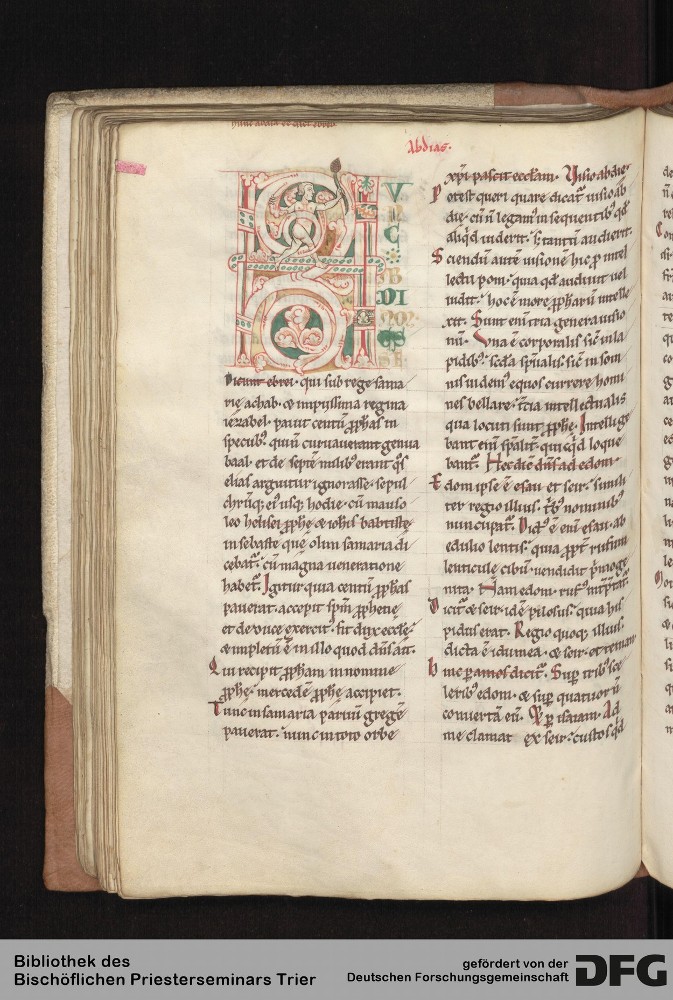 hunc aiunt ee dicit ebrei
Abdias.
HVNC
ABDI
Dicunt ebrei. qui sub rege sama
rię achab. ⁊ impiissima regina
iezabel. pauit centū ꝓphas in
specub᷒. quiū curuauerant genua
baal. et de septē milib᷒ erant q̇s
elias arguitur ignorasse. sepul
chrūq; ei᷒ usq; hodie. cū mauso
leo helisei ꝓphę ⁊ ioħis babtistę
in sebaste que olim samaria di
cebat᷑. cū magna ueneratione
habet᷑. Igitur quia centū ꝓphas
pauerat. accepit sp̄m ꝓphetię
et de duce exercit᷒. fit dux ęccłę.
⁊ impletū ē in illo quod dn̄s ait.
Qui recipit ꝓpham in nomine
ꝓphę. mercedē ꝓphę accipiet.
Tunc in samaria paruū gregē
pauerat. nunc in toto orbe
xp̄i pascit eccłam. Visio abdie.
Potest queri quare dicat᷑ uisio ab
die. cū n̄ legam᷒ in sequentib᷒ qđ
aliqd uiderit. s; tantū audierit.
Sciendū autē uisione hic ꝓ intel
lectu poni. quia qđ audiuit uel
uidit. hoc ē more ꝓpharū intelle
xit. Sunt enī tria genera uisio
nū. Una ē corporalis sic̄ in la
pidib᷒. scđa sp̄ualis. sic̄ in som
nis uidem᷒ equos currere homi
nes bellare. t̄cia intellectualis
qua locuti sunt ꝓphę. Intellige
bant enī sp̄alit᷑. quicq̇d loque
bant᷑. Hec dic̄ dn̄s ad edom.
Edom ipse ē esau et seir. simili
ter regio illius. t̄b᷒ nominib᷒
nuncupat᷑. Dict᷒ ē enī esau. ab
edulio lentis. quia ꝓpt᷑ rufum
lenticule cibū. uendidit p̄moge
nita. Nam edom. ruf᷒ int̄p̄tat᷑.
Dicit᷑ ⁊ seir. idē pilosus. quia his
pidus erat. Regio quoq; illius.
dicta ē idumea. ⁊ seir. et teman.
hinc ꝑ amos dicit᷑. Sup̄ trib᷒ sce
lerib᷒ edom. ⁊ sup̄ quatuor n̄
conuertā eū. ꝑ isaiam. Ad
me clamat ex seir. custos qđ
Bibliothek des
Bischöflichen Priesterseminars Trier
gefördert von der
Deutschen Forschungsgemeinschaft
DFG